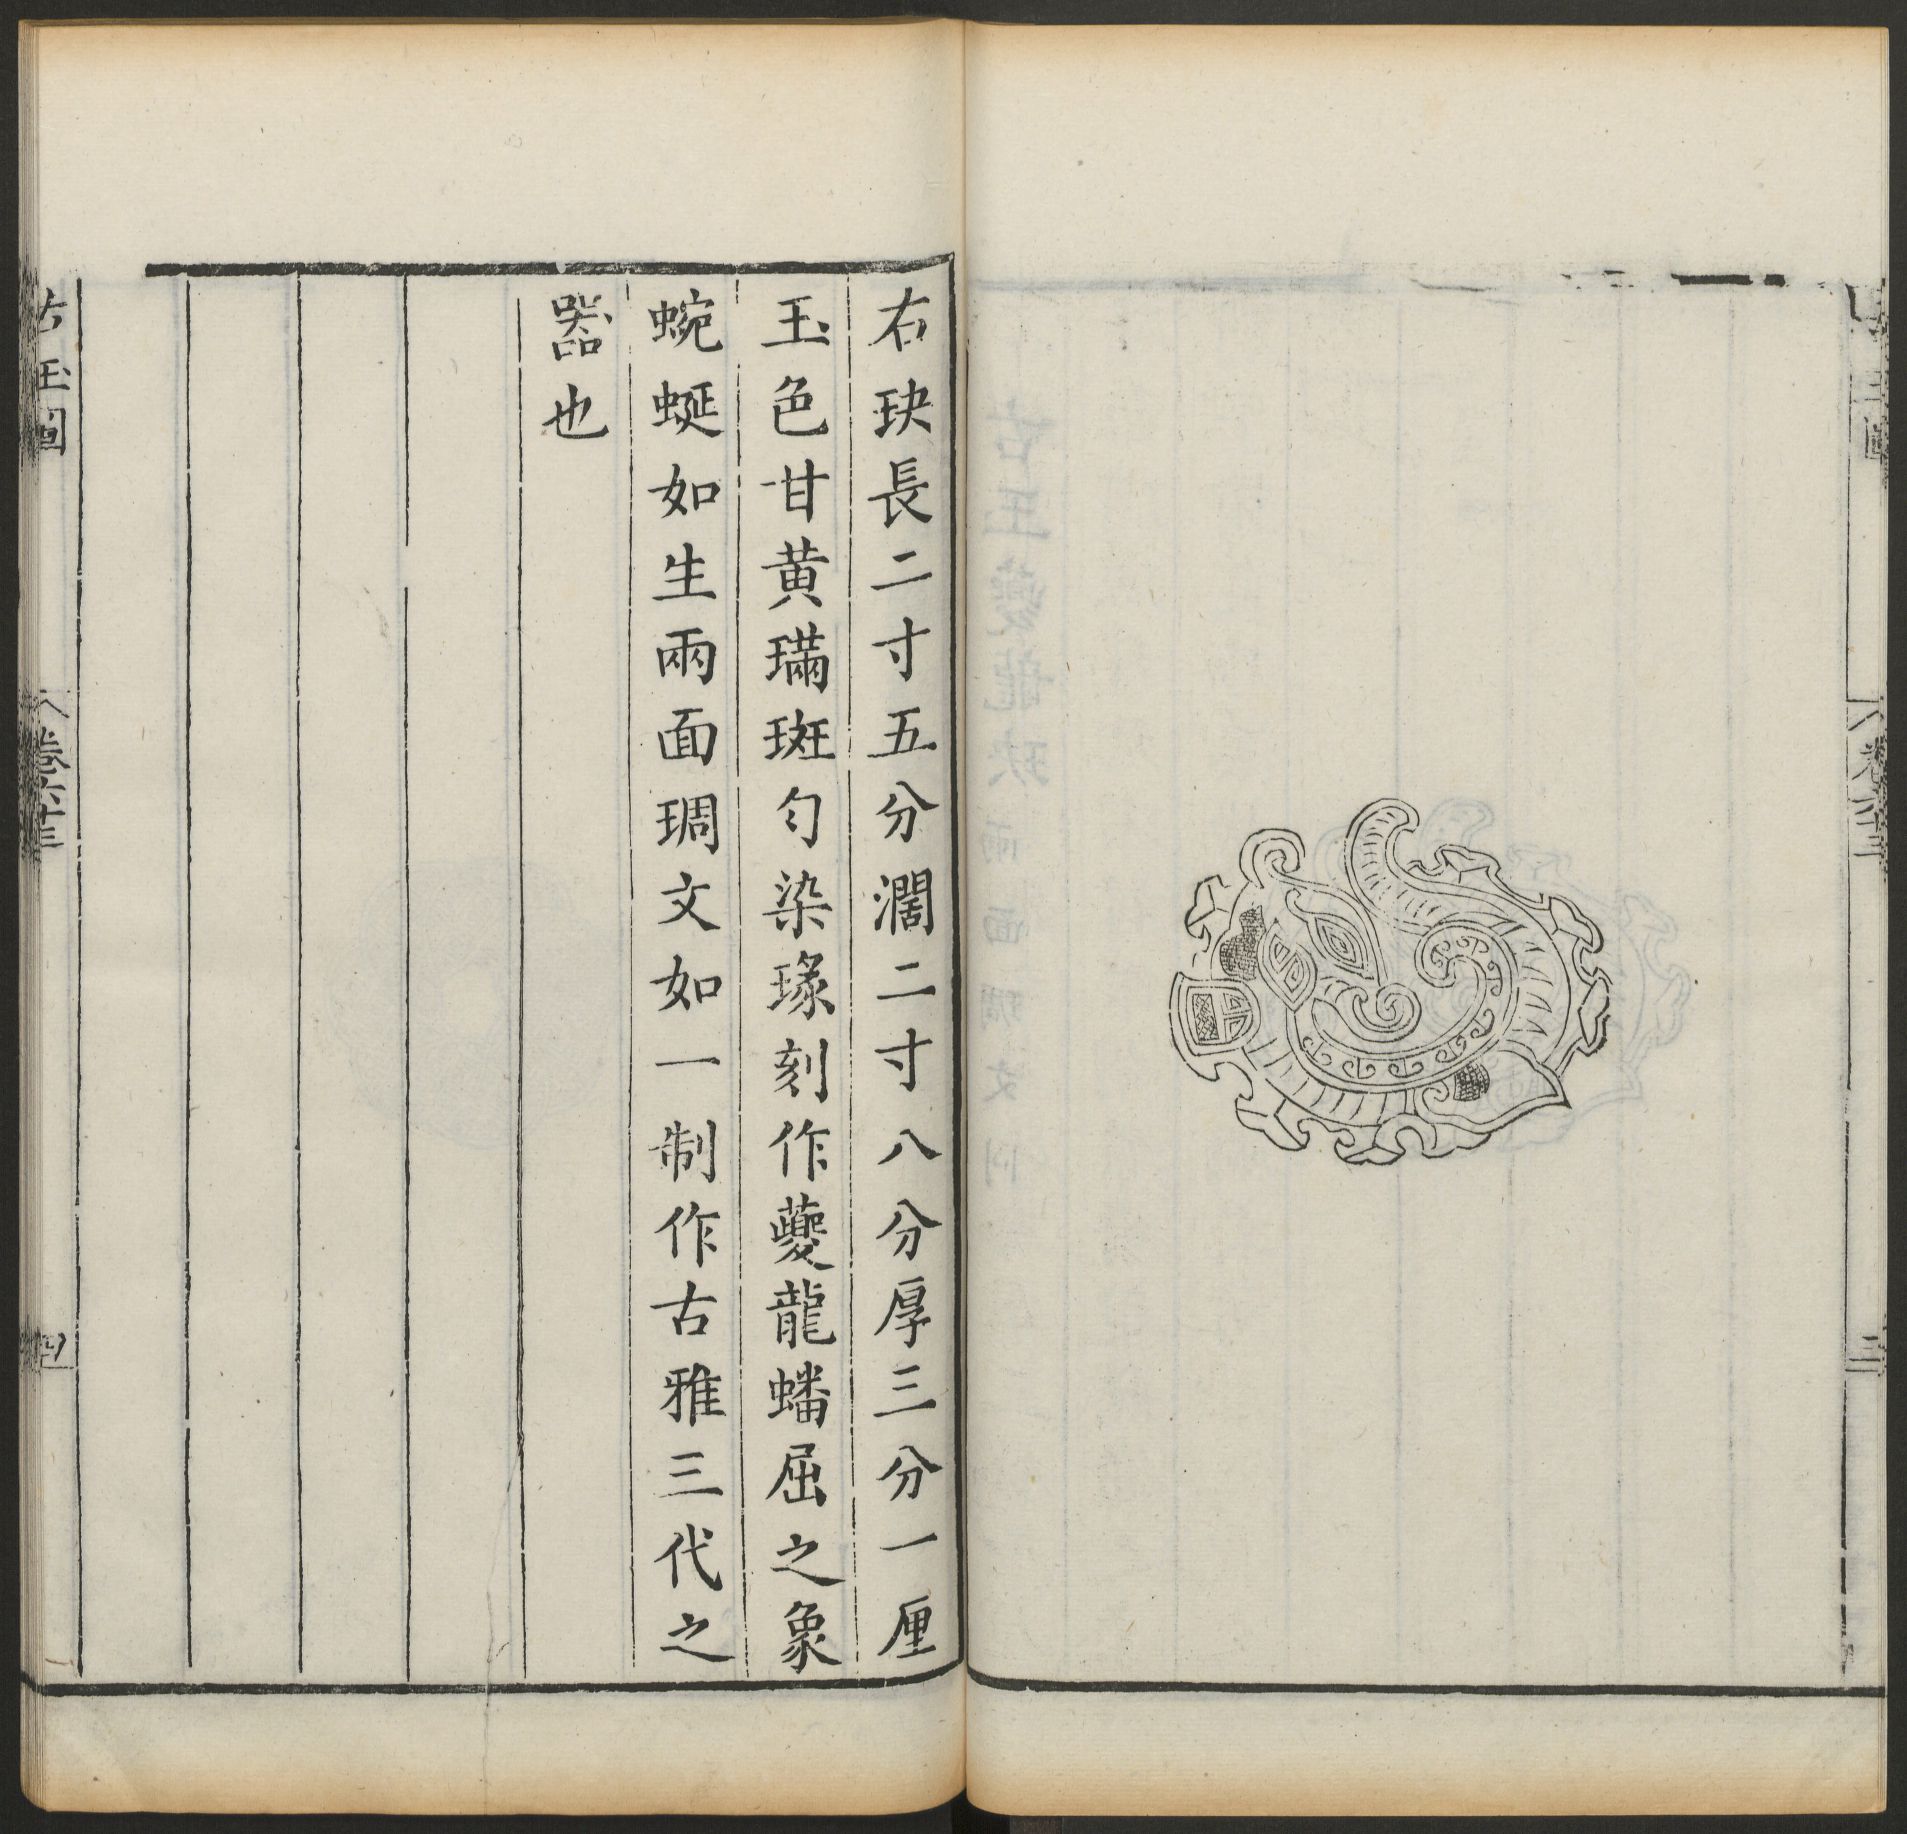 右玦長二寸五分濶二寸八分厚三分一厘
玉色甘黃璊斑勻染瑑刻作夔龍蟠屈之象
蜿蜒如生兩面琱文如一制作古雅三代之
器也
古玉圖
卷六十三
四
玉圖
卷六十三
三